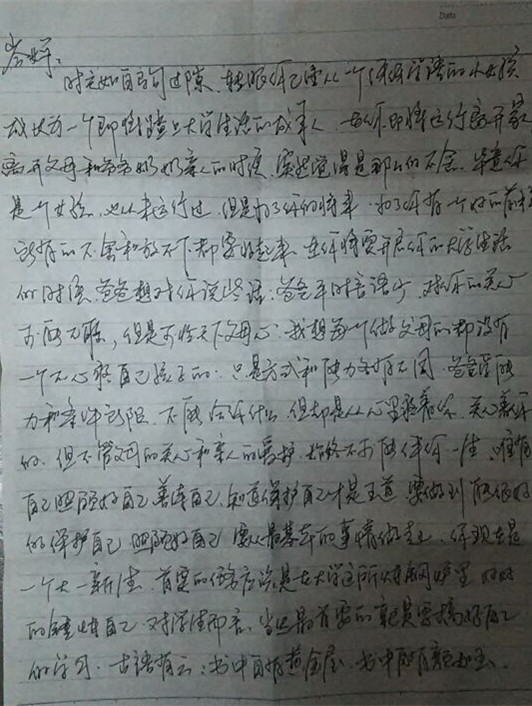 时光如白驹过隙、转眼你已经从一个牙牙学语的小女孩
成长为一个即将踏上大学生活的成年人、在你即将远行离开家
离开父母和爷爷奶奶亲人的时候、突然觉得是那么的不舍、毕竟你
是一个女孩、也从未远行过、但是为了你的将来、为了你有一个好的前程
所有的不舍和放不下都要收起来、在你将要开启你的大学生活
的时候、爸爸想对你说些话：爸爸平时言语少、对你的关心
可能不够，但是可怜天下父母心、我想每一个做父母的都没有
一个不心疼自己孩子的：只是方式和能力各有不同、爸爸能
力和条件所限、不能给你什么、但却是从心里疼着你、关心着你
的、但不管父母的关心和亲人的爱护、始终不可能伴你一生、唯有
自己照顾好自己善待自己、知道保护自己才是王道、要做到能很好
的保护自己、照顾好自己、要从最基本的事情做起、你现在是
一个大一新生、首要的任务应该是在大学这所熔炉里好好
的锤炼自己、对学生而言、当然最首要的就是要搞好自己
的学习、古语有云：书中自有黄金屋、书中自有颜如玉、